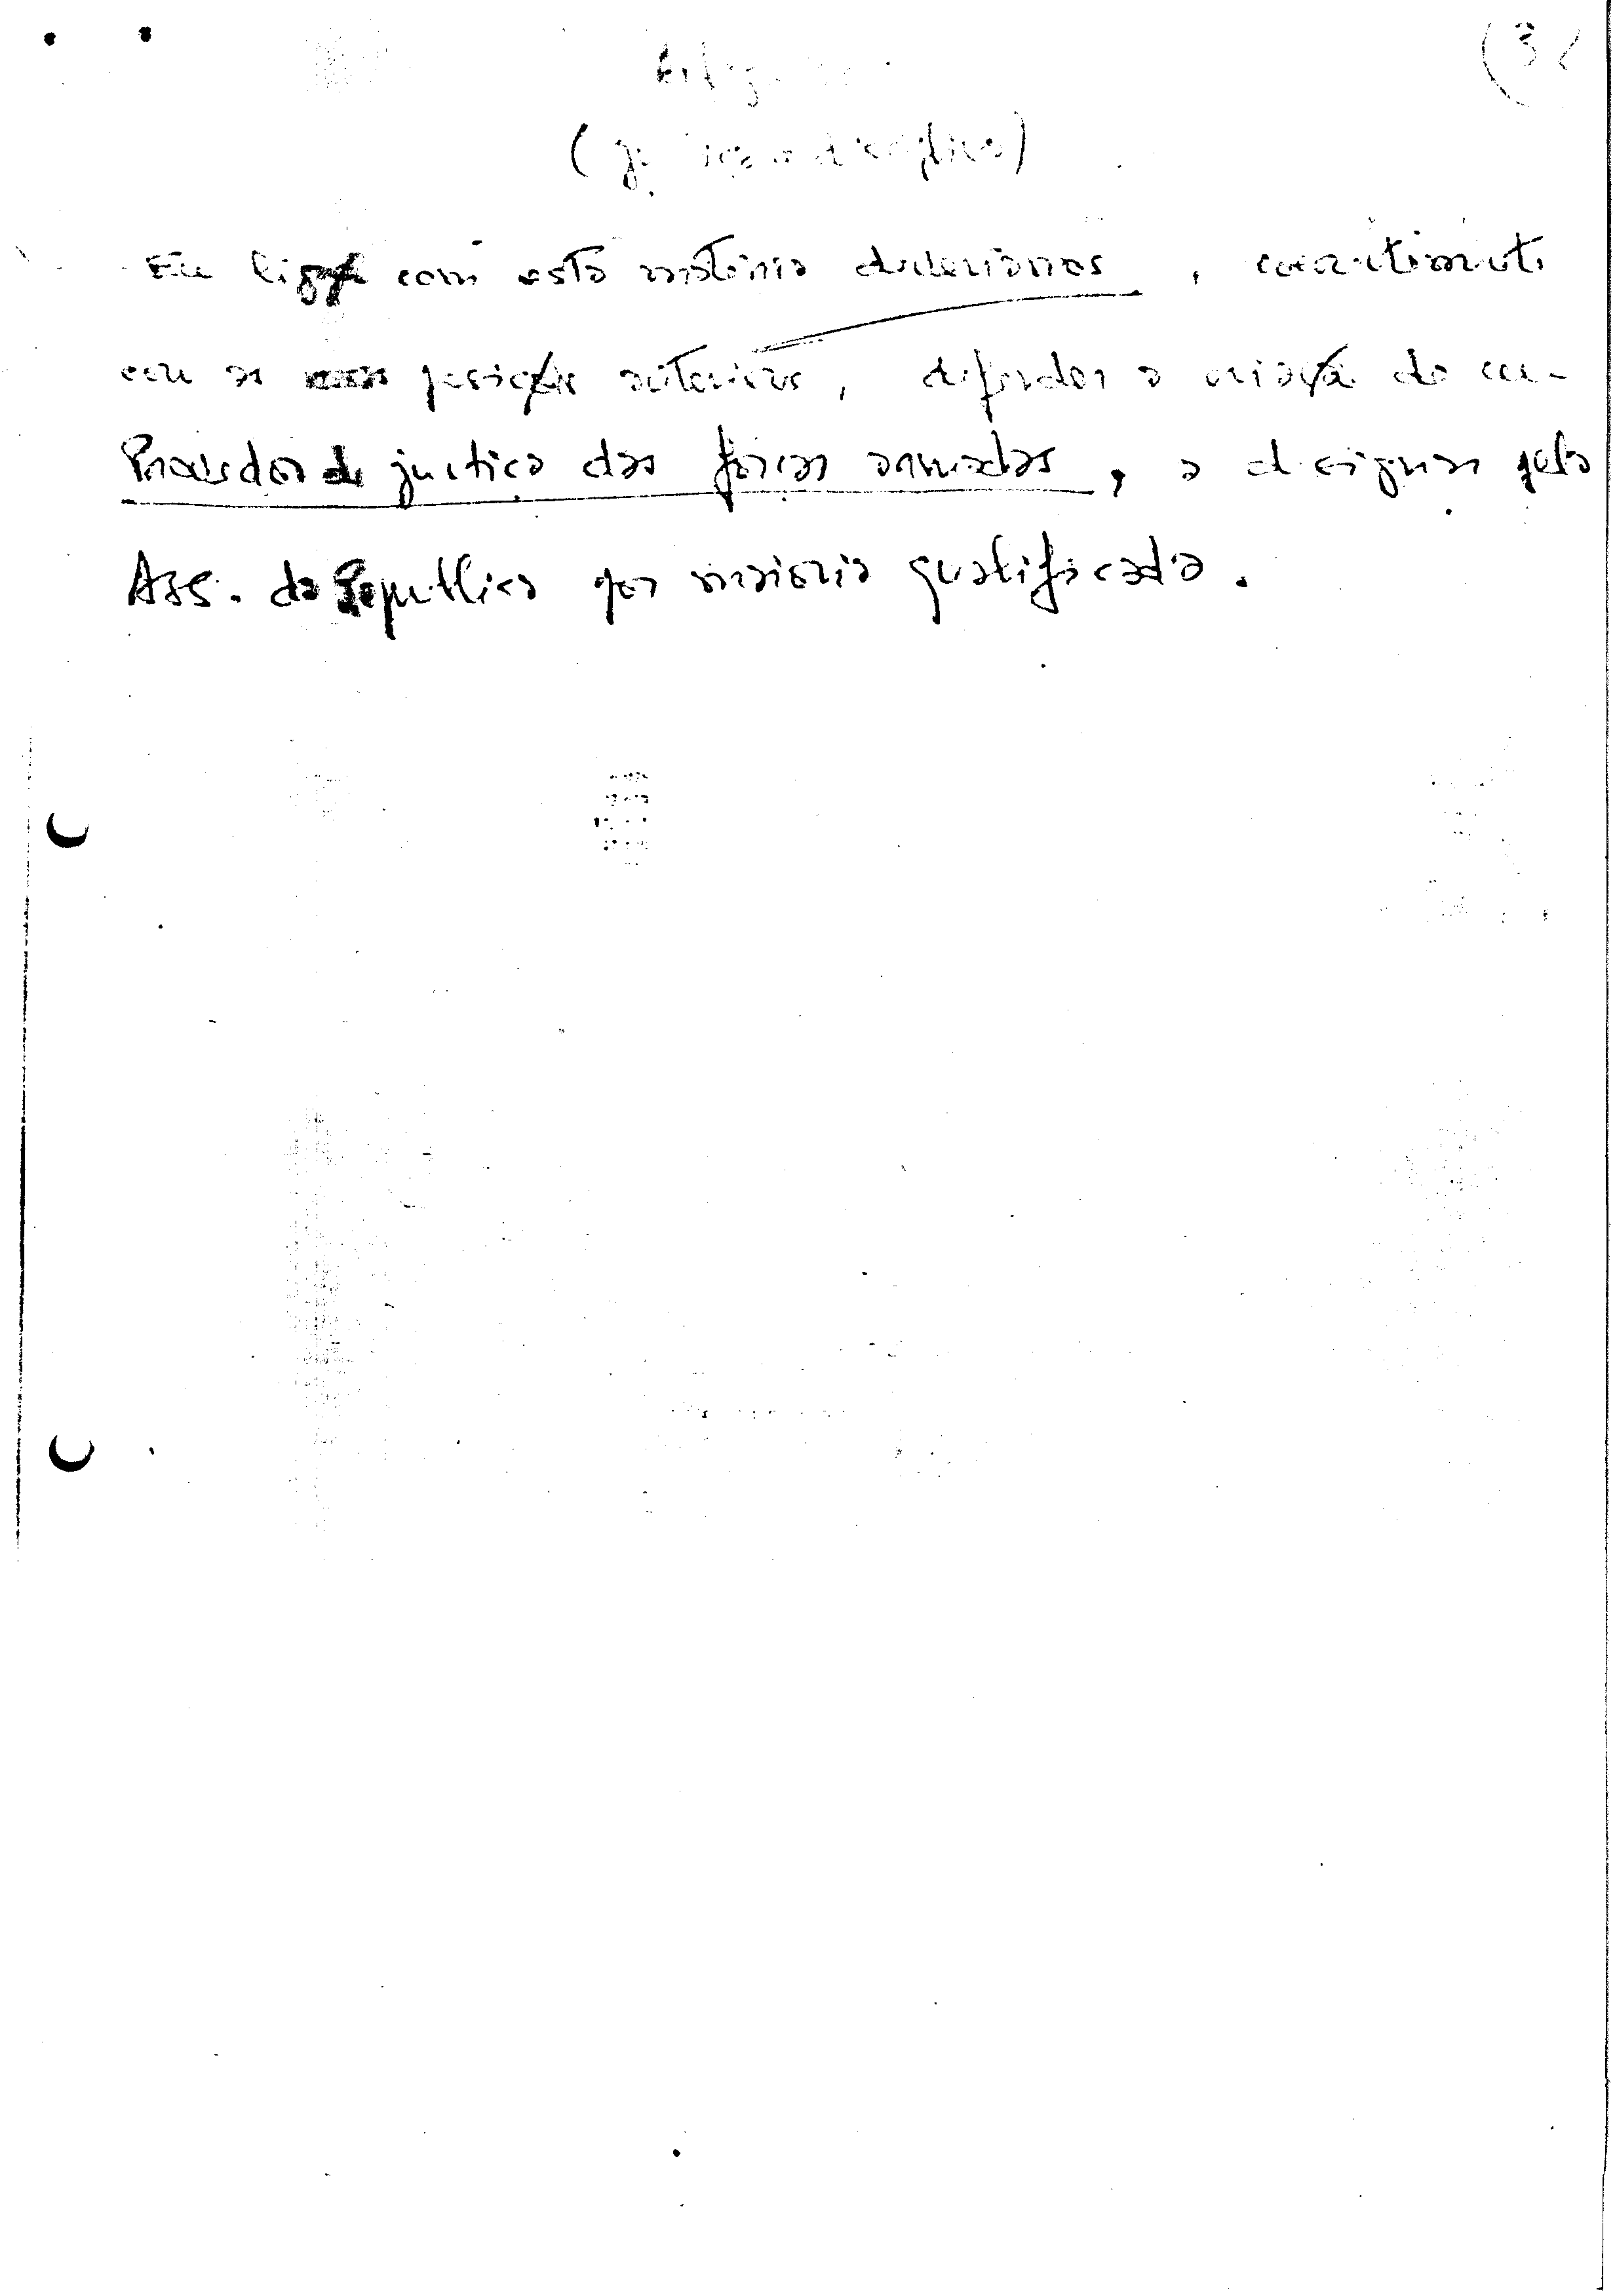 (3
Artigo
(justiça e disciplina)
Em ligação com esta matéria deveríamos, coerentemente
com as posições anteriores, defender a criação de um
Provedor de justiça das forças armadas, a designar pela
Ass. da República por maioria qualificada.